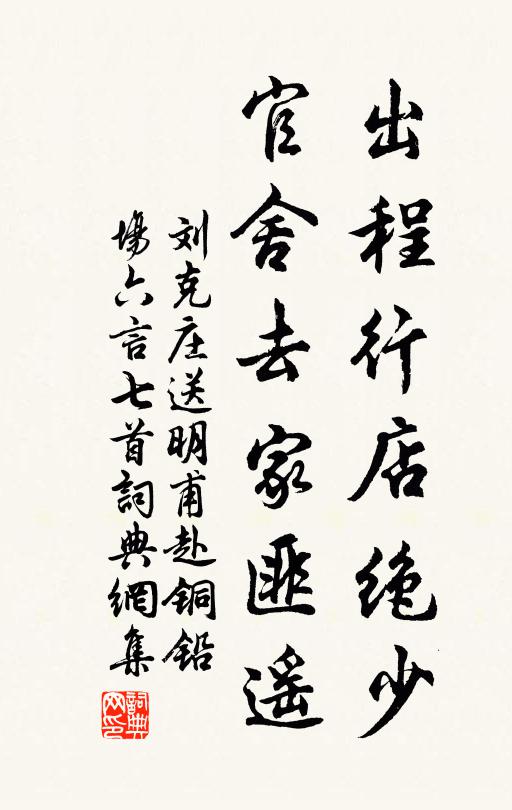 出程行店绝少
官舍去家匪遥
刘克庄送明甫赴铜铅
场六言七首詞典網集
詞典网印